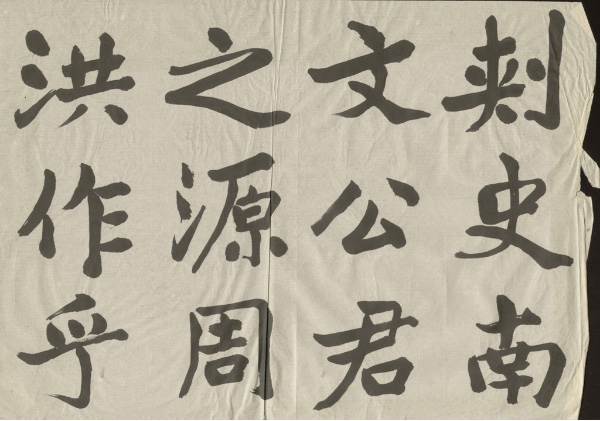 刺史南
文公君
之源周
洪作乎